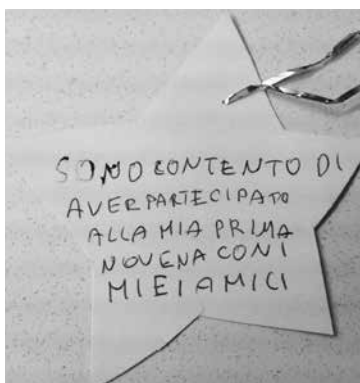 SONO CONTENTO DI
AVER PARTECIPATO
ALLA MIA PRIMA
NOVENA CON I
MIEI AMICI